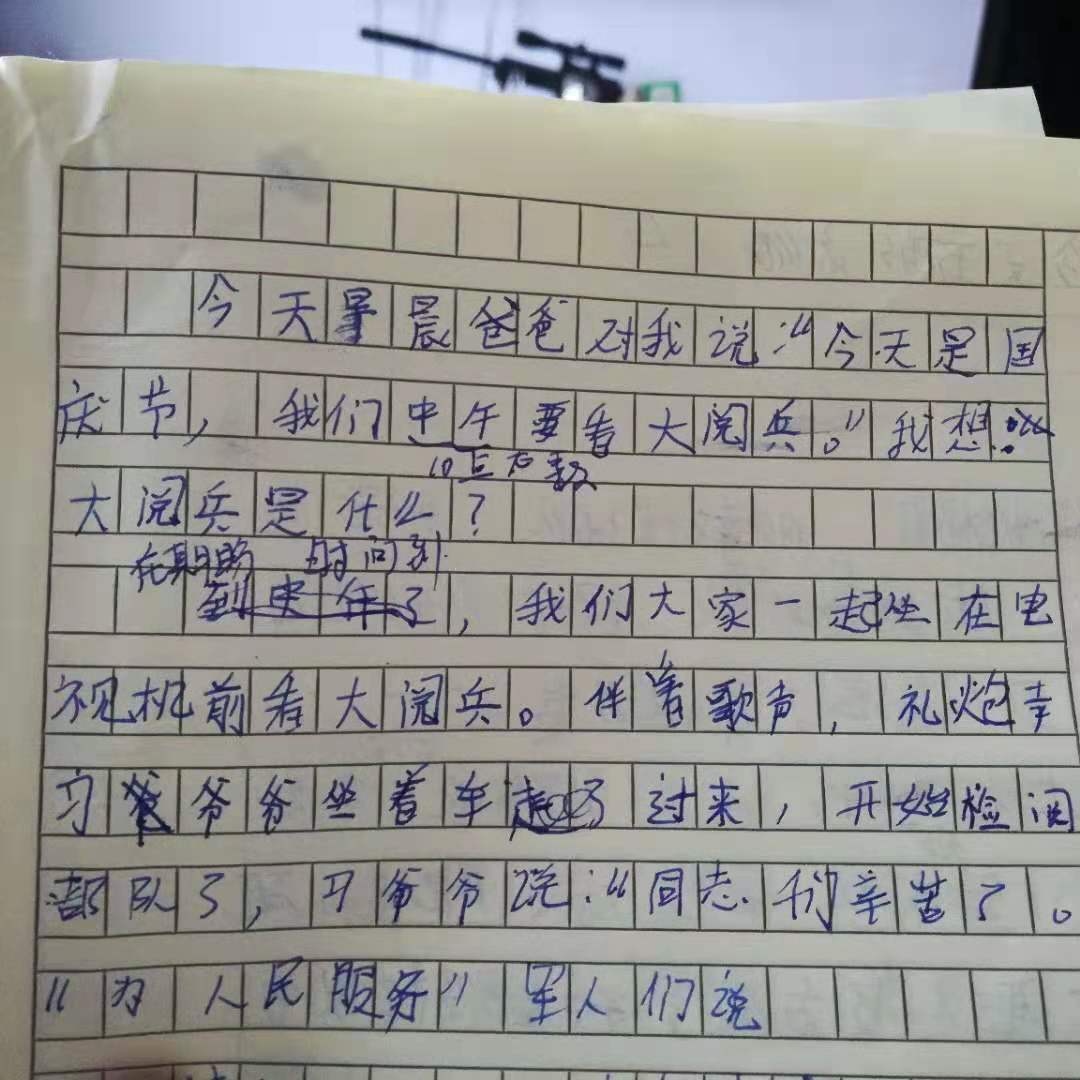 今天早晨爸爸对我说:“今天是国
庆节,我们中午要看大阅兵。”我想:“
10点左右
大阅兵是什么?
在期盼 时间到
到中午了,我们大家一起坐在电
视机前看大阅兵。伴着歌声,礼炮声
习爷爷坐着车过来,开始检阅
部队了,习爷爷说:“同志们辛苦了。
“为人民服务”军人们说